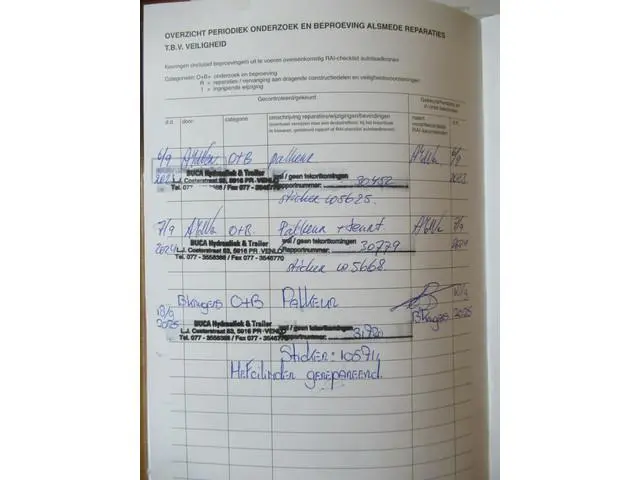 OVERZICHT PERIODIEK ONDERZOEK EN BEPROEVING ALSMEDE REPARATIES
T.B.V. VEILIGHEID
Keuringen (inclusief beproevingen) uit te voeren overeenkomstig RAI-checklist autolaadkranen
Categorieën: O+B = onderzoek en beproeving
R = reparaties / vervanging aan dragende constructiedelen en veiligheidsvoorzieningen
I = ingrijpende wijziging
Gecontroleerd/gekeurd
d.d. door: categorie omschrijving reparaties/wijzigingen/bevindingen d.d.
6/9 O+B palkeur 6/9
2023 BUCA Hydrauliek & Trailer wel / geen tekortkomingen 2023
L.J. Costerstraat 53, 5916 PR VENLO Rapportnummer: 30452
Tel. 077 - 3558388 / Fax 077 - 3546770
sticker 105625.
7/9 O+B. Palkeur + 7/9
2024 BUCA Hydrauliek & Trailer wel / geen tekortkomingen 2024
L.J. Costerstraat 53, 5916 PR VENLO Rapportnummer: 30779
Tel. 077 - 3558388 / Fax 077 - 3546770
sticker 105668.
O+B Palkeur
2025 BUCA Hydrauliek & Trailer wel / geen tekortkomingen 2025
L.J. Costerstraat 53, 5916 PR VENLO Rapportnummer:
Tel. 077 - 3558388 / Fax 077 - 3546770
Sticker: 105711
Hefcilinder gerepareerd.